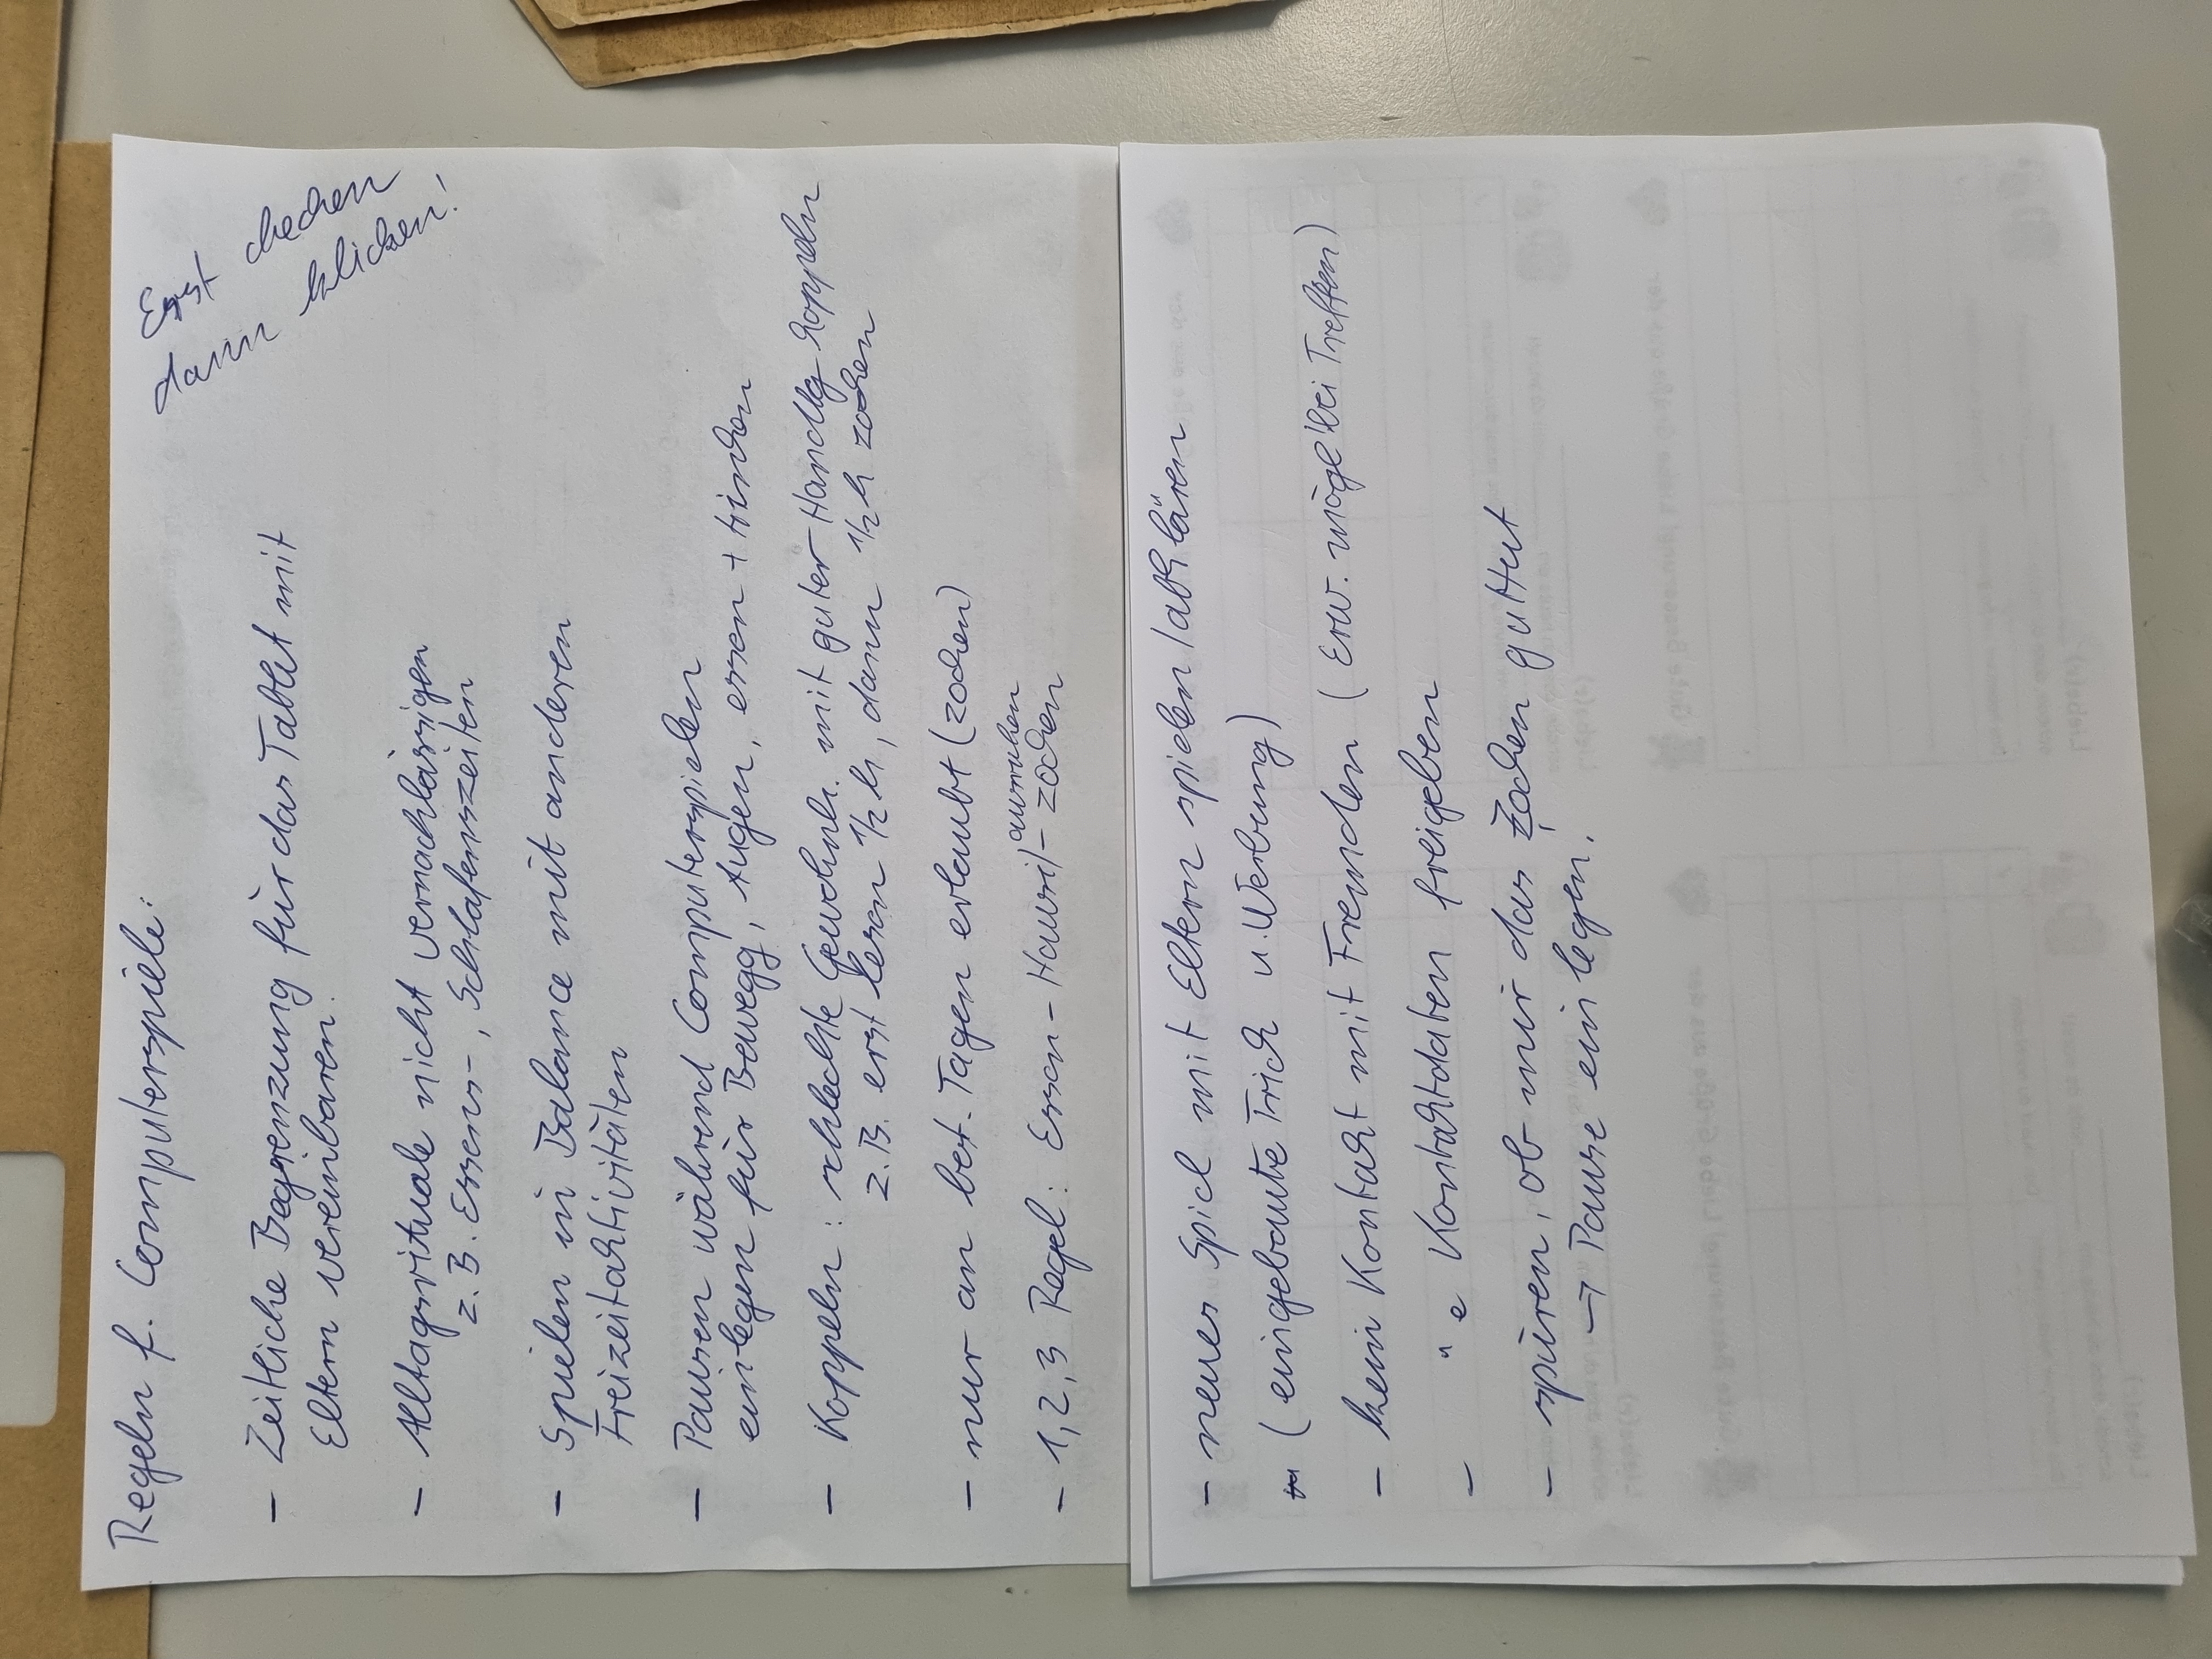 Regeln f. Computerspiele:
Erst checken
dann klicken!
- Zeitliche Begrenzung für das Tablet mit
Eltern vereinbaren.
- Alltagsrituale nicht vernachlässigen
z.B. Essens-, Schlafenszeiten
- Spielen in Balance mit anderen
Freizeitaktivitäten
- Pausen während Computerspielen
einlegen für Bewegg, Augen, essen + trinken
- Koppeln: schlechte Gewohnh. mit guter Handlg koppeln
z.B. erst lesen 1/2 h, dann 1/2 h zocken
- nur an best. Tagen erlaubt (zocken)
ausruhen
- 1,2,3 Regel: Essen - Hausi - zocken
- neues Spiel mit Eltern spielen / abklären
(eingebaute Trick u. Werbung)
- kein Kontakt mit Fremden (Erw. mögl bei Treffen)
- " e Kontaktdaten freigeben
- spüren, ob mir das Zocken guttut
→ Pause einlegen!
Gute Besserung! Liebe Grüße aus der
Gute Besserung! Liebe Grüße aus der
Liebe(r)
Liebe(r)